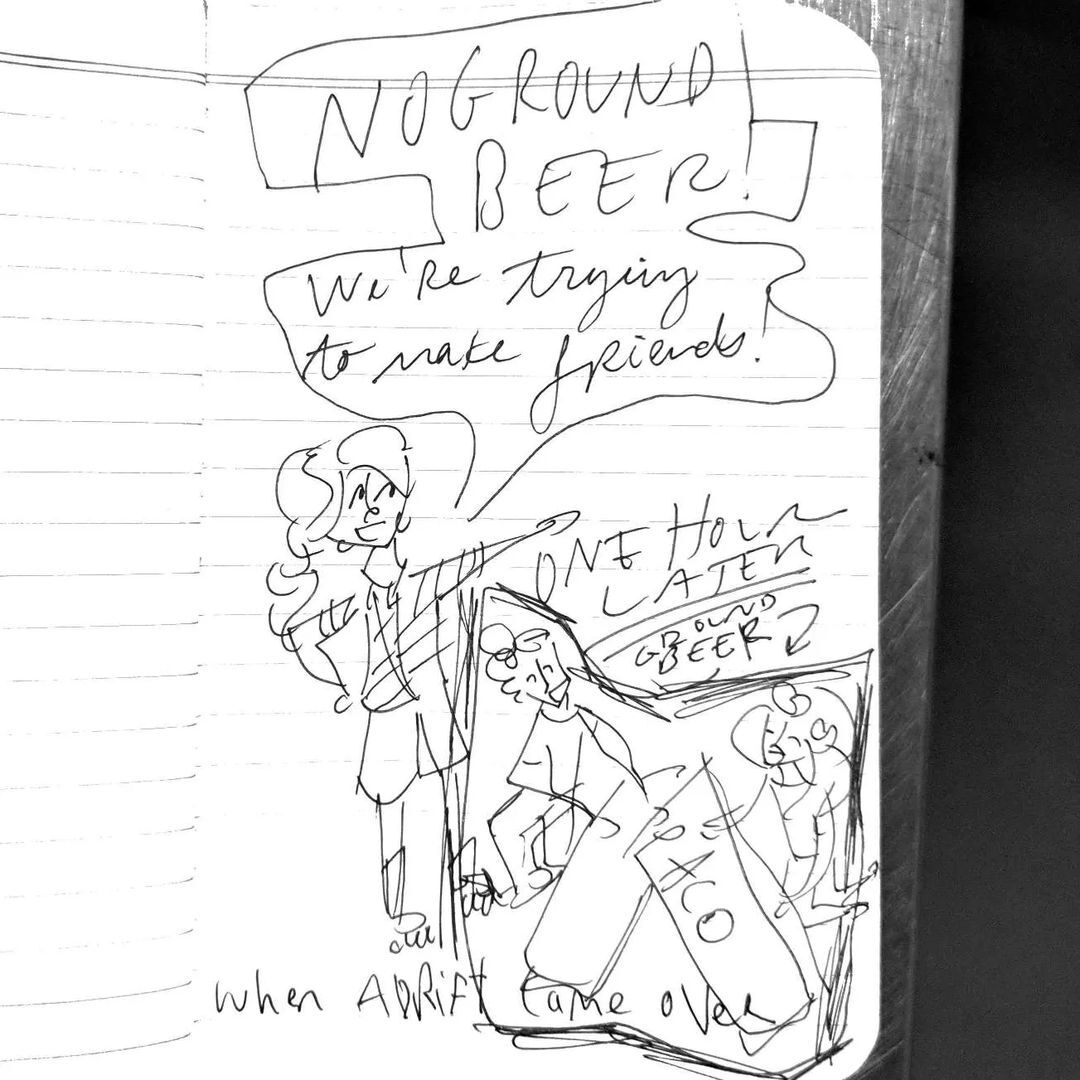 NO GROUND
BEER!
We're trying
to make friends!
ONE HOUR
LATER
GROUND
BEER
XCO
when ADRIFT came over